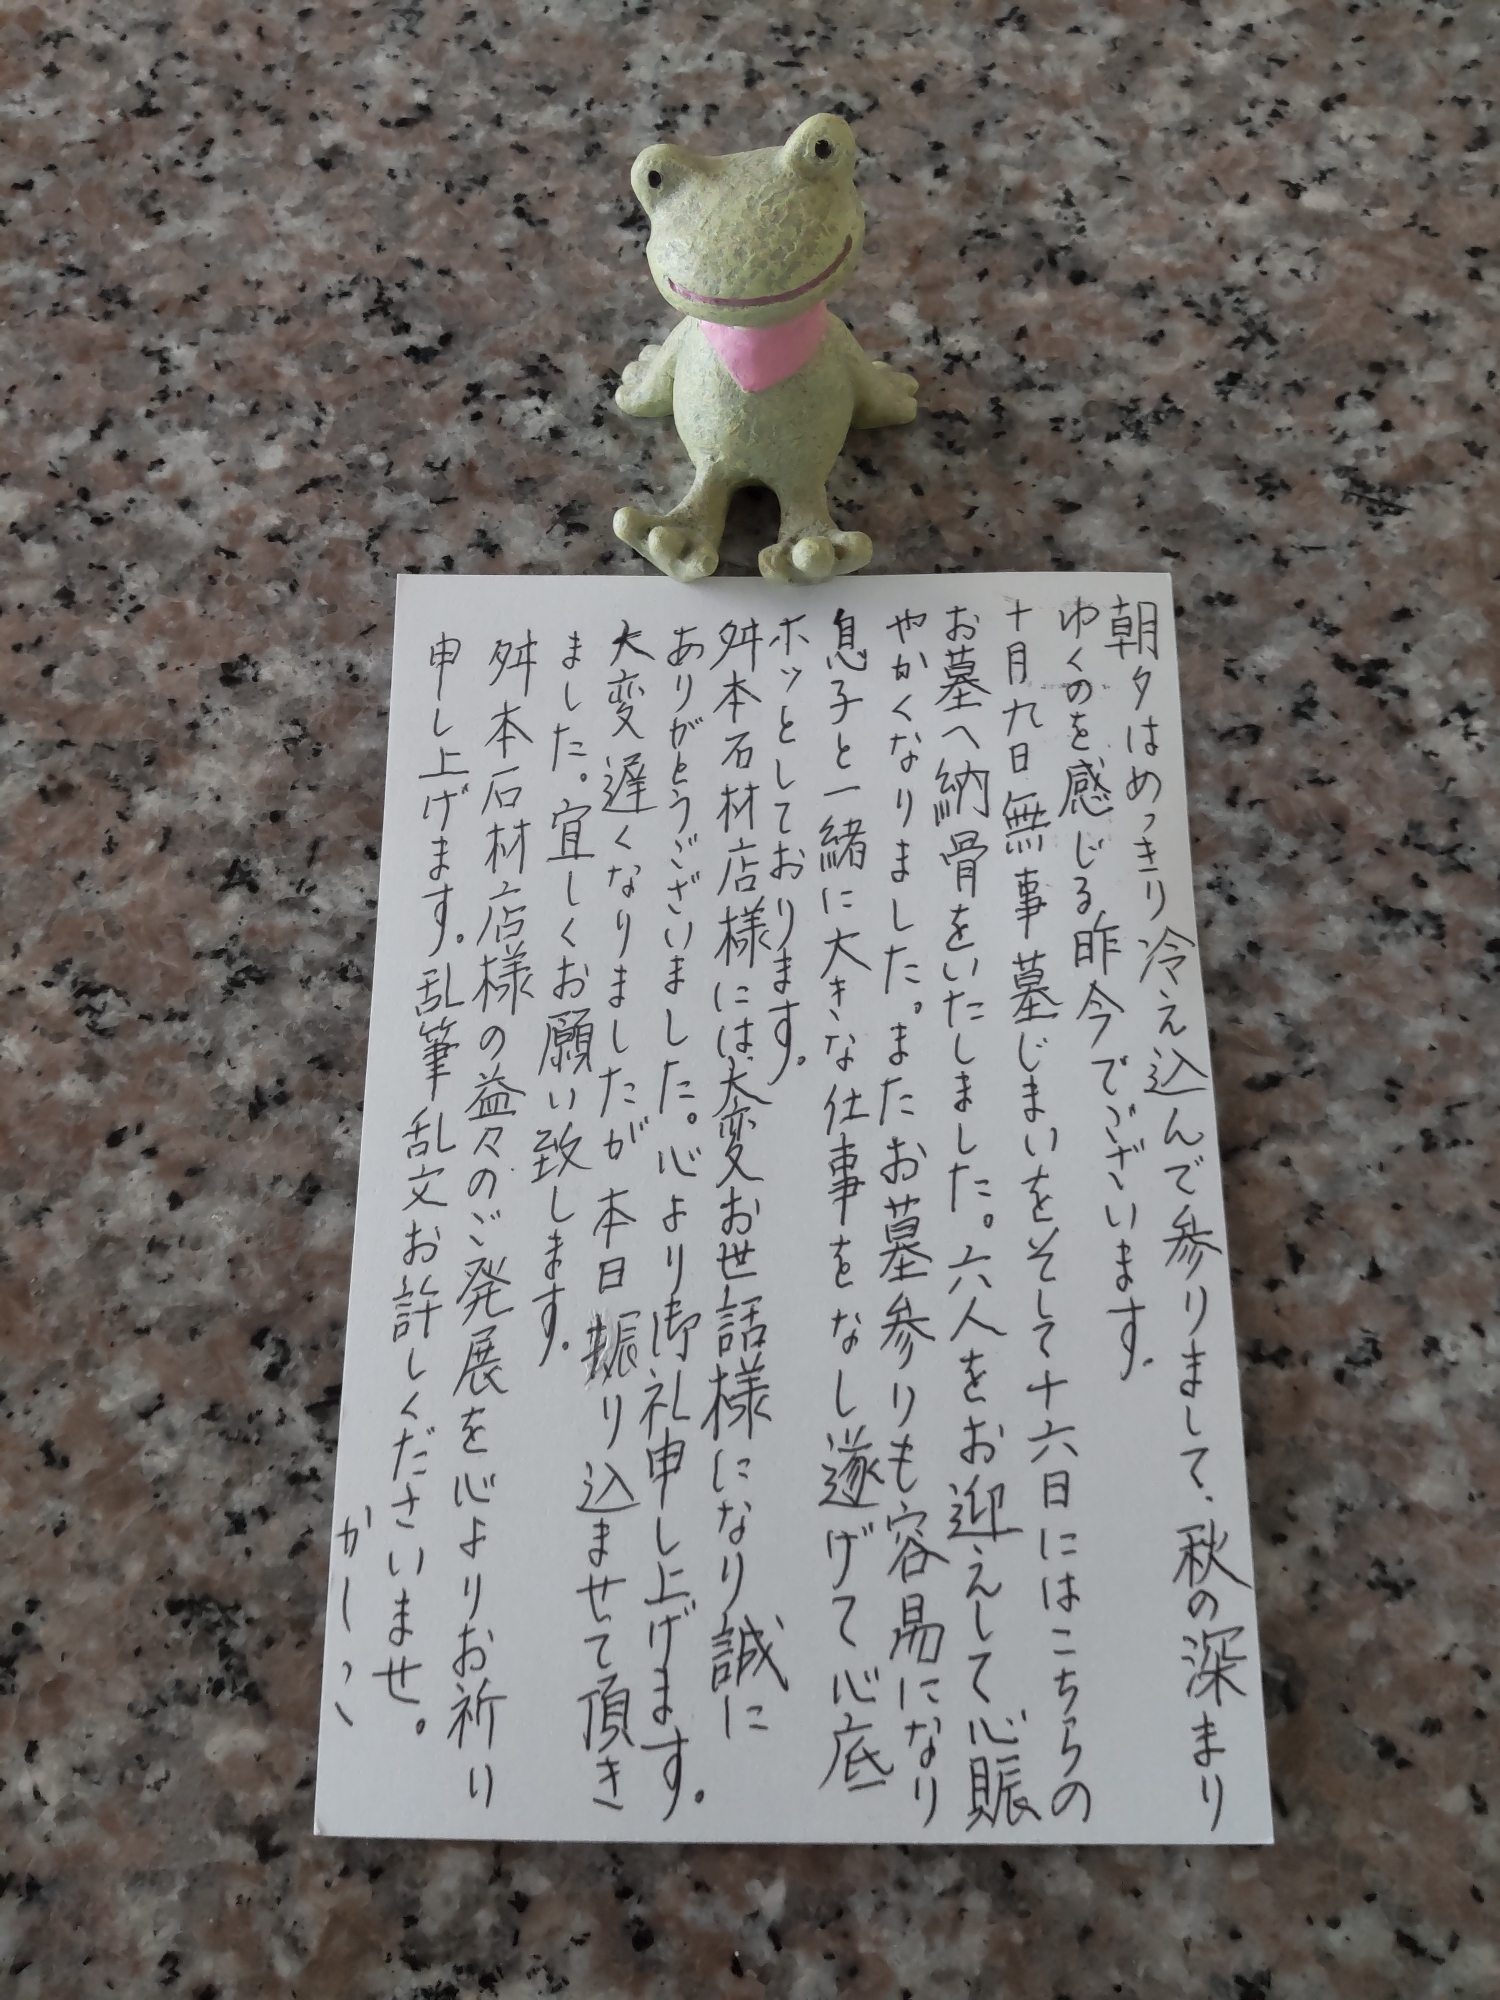 朝夕はめっきり冷え込んで参りまして、秋の深まり
ゆくのを感じる昨今でございます。
十月九日無事墓じまいをそして十六日にはこちらの
お墓へ納骨をいたしました。六人をお迎えして心賑
やかくなりました。またお墓参りも容易になり
息子と一緒に大きな仕事をなし遂げて心底
ホッとしております。
舛本石材店様には大変お世話様になり誠に
ありがとうございました。心より御礼申し上げます。
大変遅くなりましたが本日振り込ませて頂き
ました。宜しくお願い致します。
舛本石材店様の益々のご発展を心よりお祈り
申し上げます。乱筆乱文お許しくださいませ。
かしこ